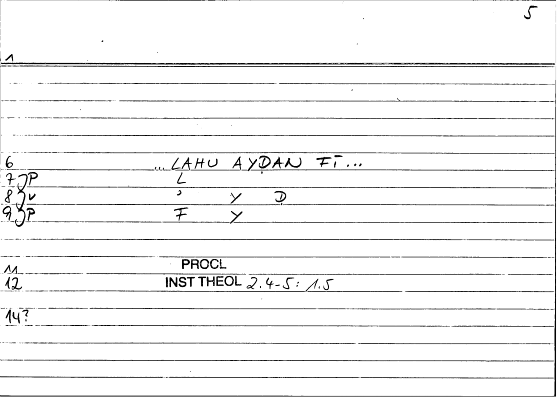 5
1
6 ... LAHU AYḌAN FĪ ...
7 } P L
8 } V ʾ Y Ḍ
9 } P F Y
11 PROCL
12 INST THEOL 2.4-5: 1.5
14?